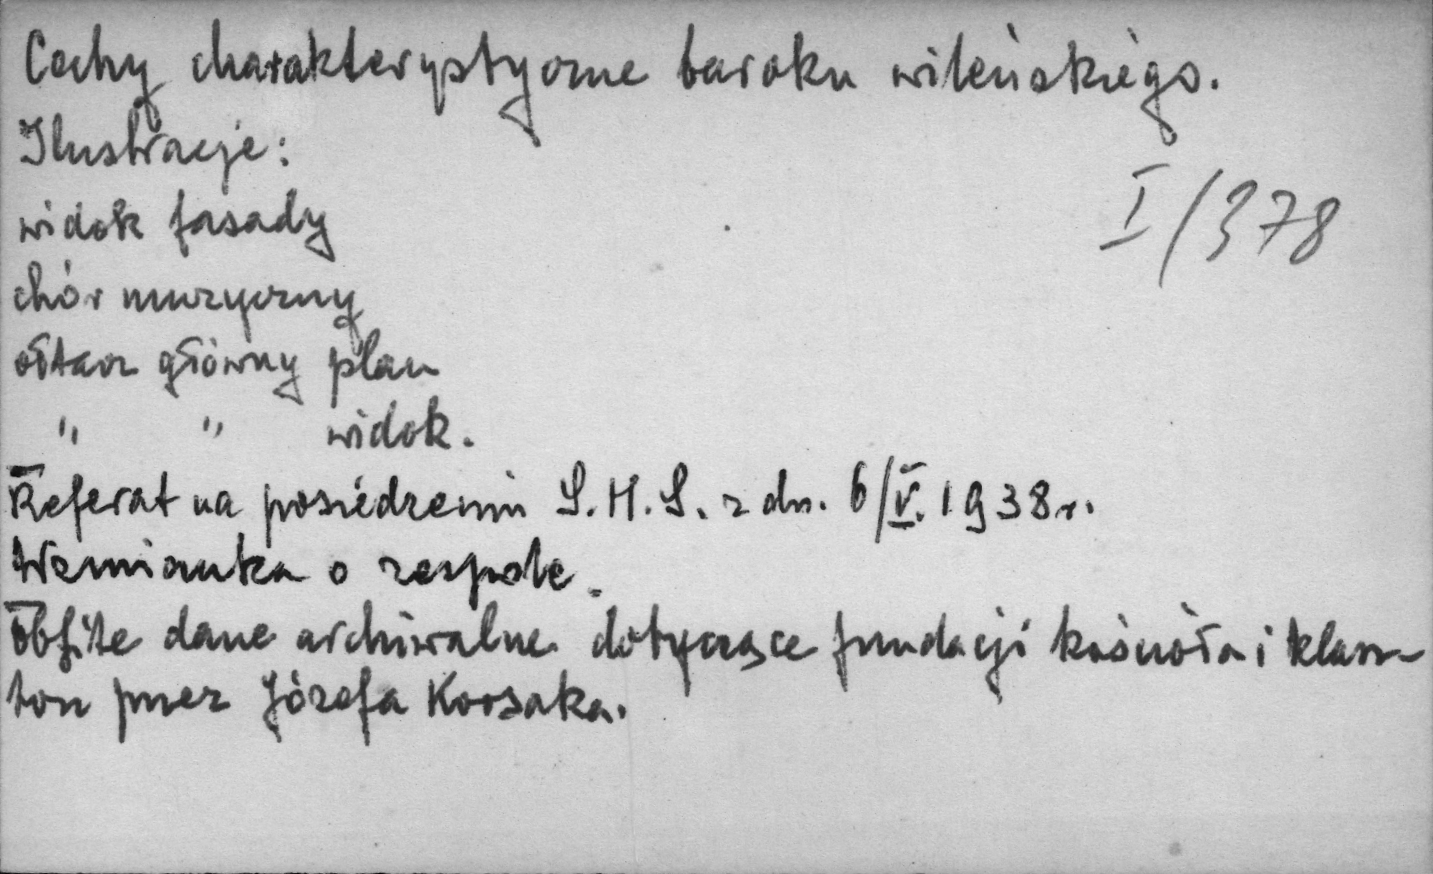 Cechy charakterystyczne baroku wileńskiego.
Ilustracje:
I/378
widok fasady
chór muzyczny
ołtarz główny plan
" " widok.
Referat na posiedzeniu S.H.S. z dn. 6/V.1938 r.
Wzmianka o zespole.
Obfite dane archiwalne dotyczące fundacji kościoła i klasz-
toru przez Józefa Korsaka.